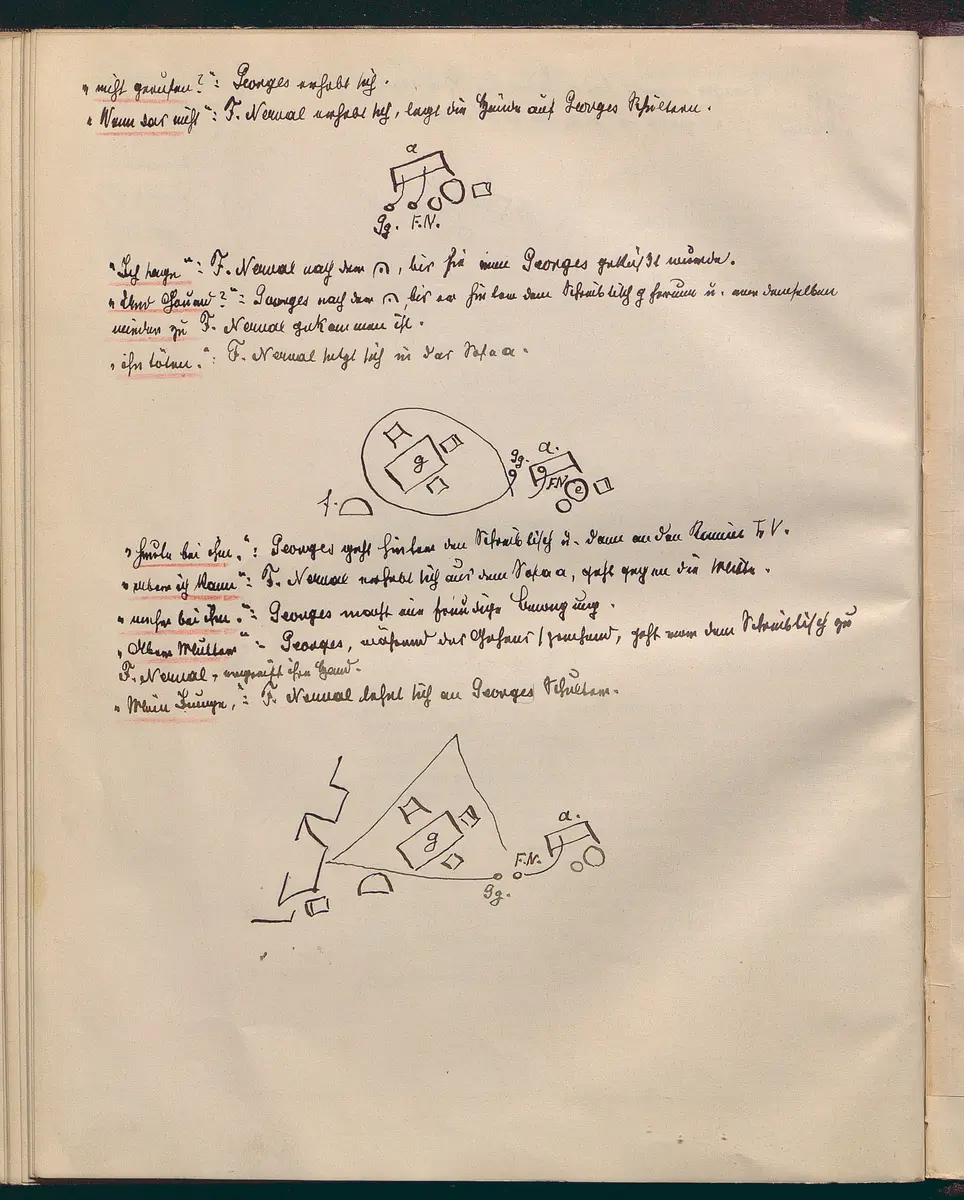 „nicht gerufen?“: Georges erhebt sich.
„Wenn das nicht“: F. Nerval erhebt sich, legt die Hände auf Georges Schultern.
a
Gg. F.N.
„Ich sage“: F. Nerval nach dem ⌢, bis sie von Georges geküßt wurde.
„Und Edward?“: Georges nach dem ⌢ bis er hinter dem Schreibtisch g herum u. vor demselben
wieder zu F. Nerval gekommen ist.
„ihn töten.“: F. Nerval setzt sich in das Sofa a.
g
Gg. a.
F.N. e
f.
„heute bei ihm.“: Georges geht hinter den Schreibtisch u. dann an den Kamin T. V.
„Aber ich kann“: F. Nerval erhebt sich aus dem Sofa a, geht gegen die Mitte.
„mehr bei ihm.“: Georges macht eine freudige Bewegung.
„Aber Mutter“: Georges, während des Gehens sprechend, geht vor dem Schreibtisch zu
F. Nerval, ergreift ihre Hand.
„Mein Junge,“: F. Nerval lehnt sich an Georges Schulter.
a.
g
F.N.
Gg.